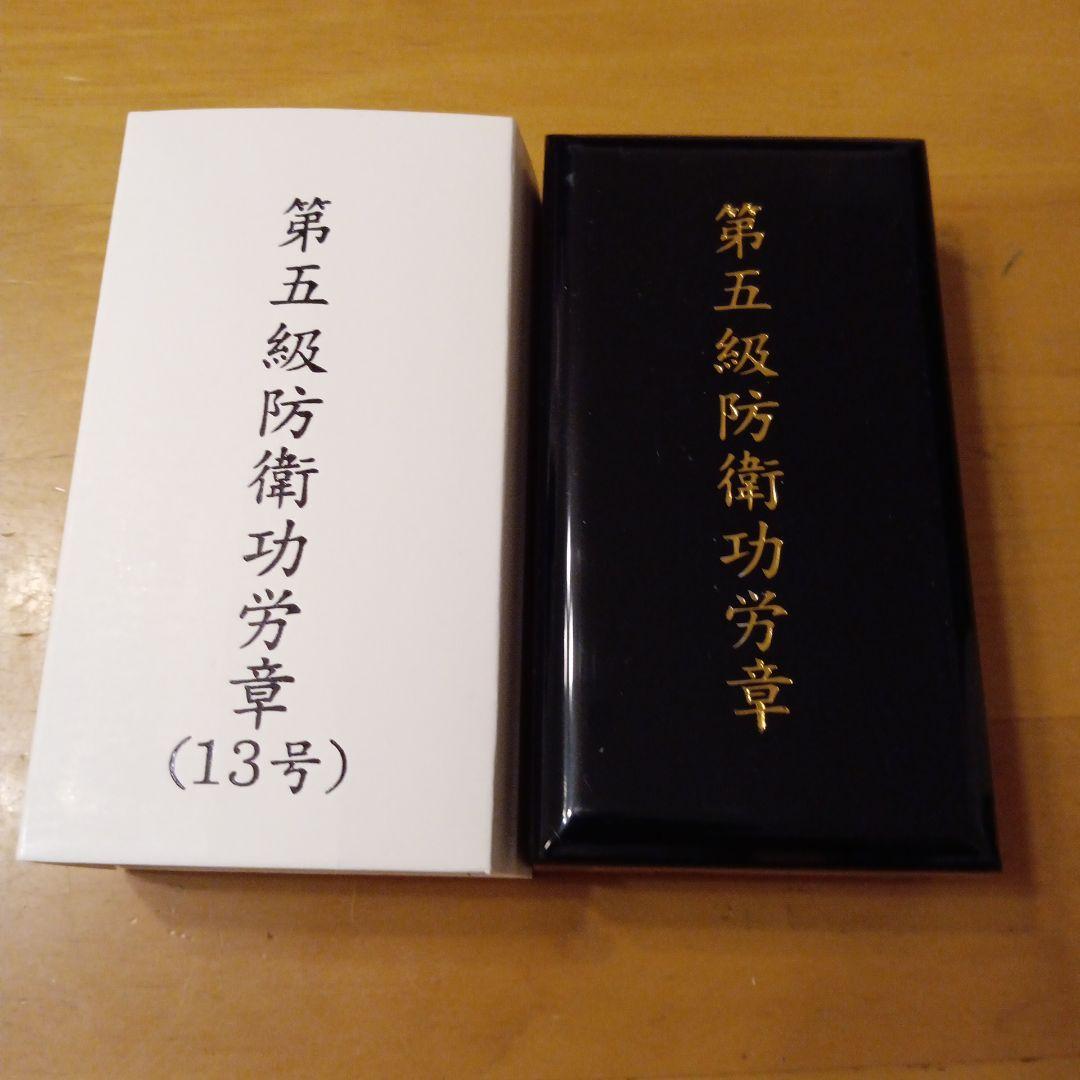 第五級防衛功労章
（13号）
第五級防衛功労章